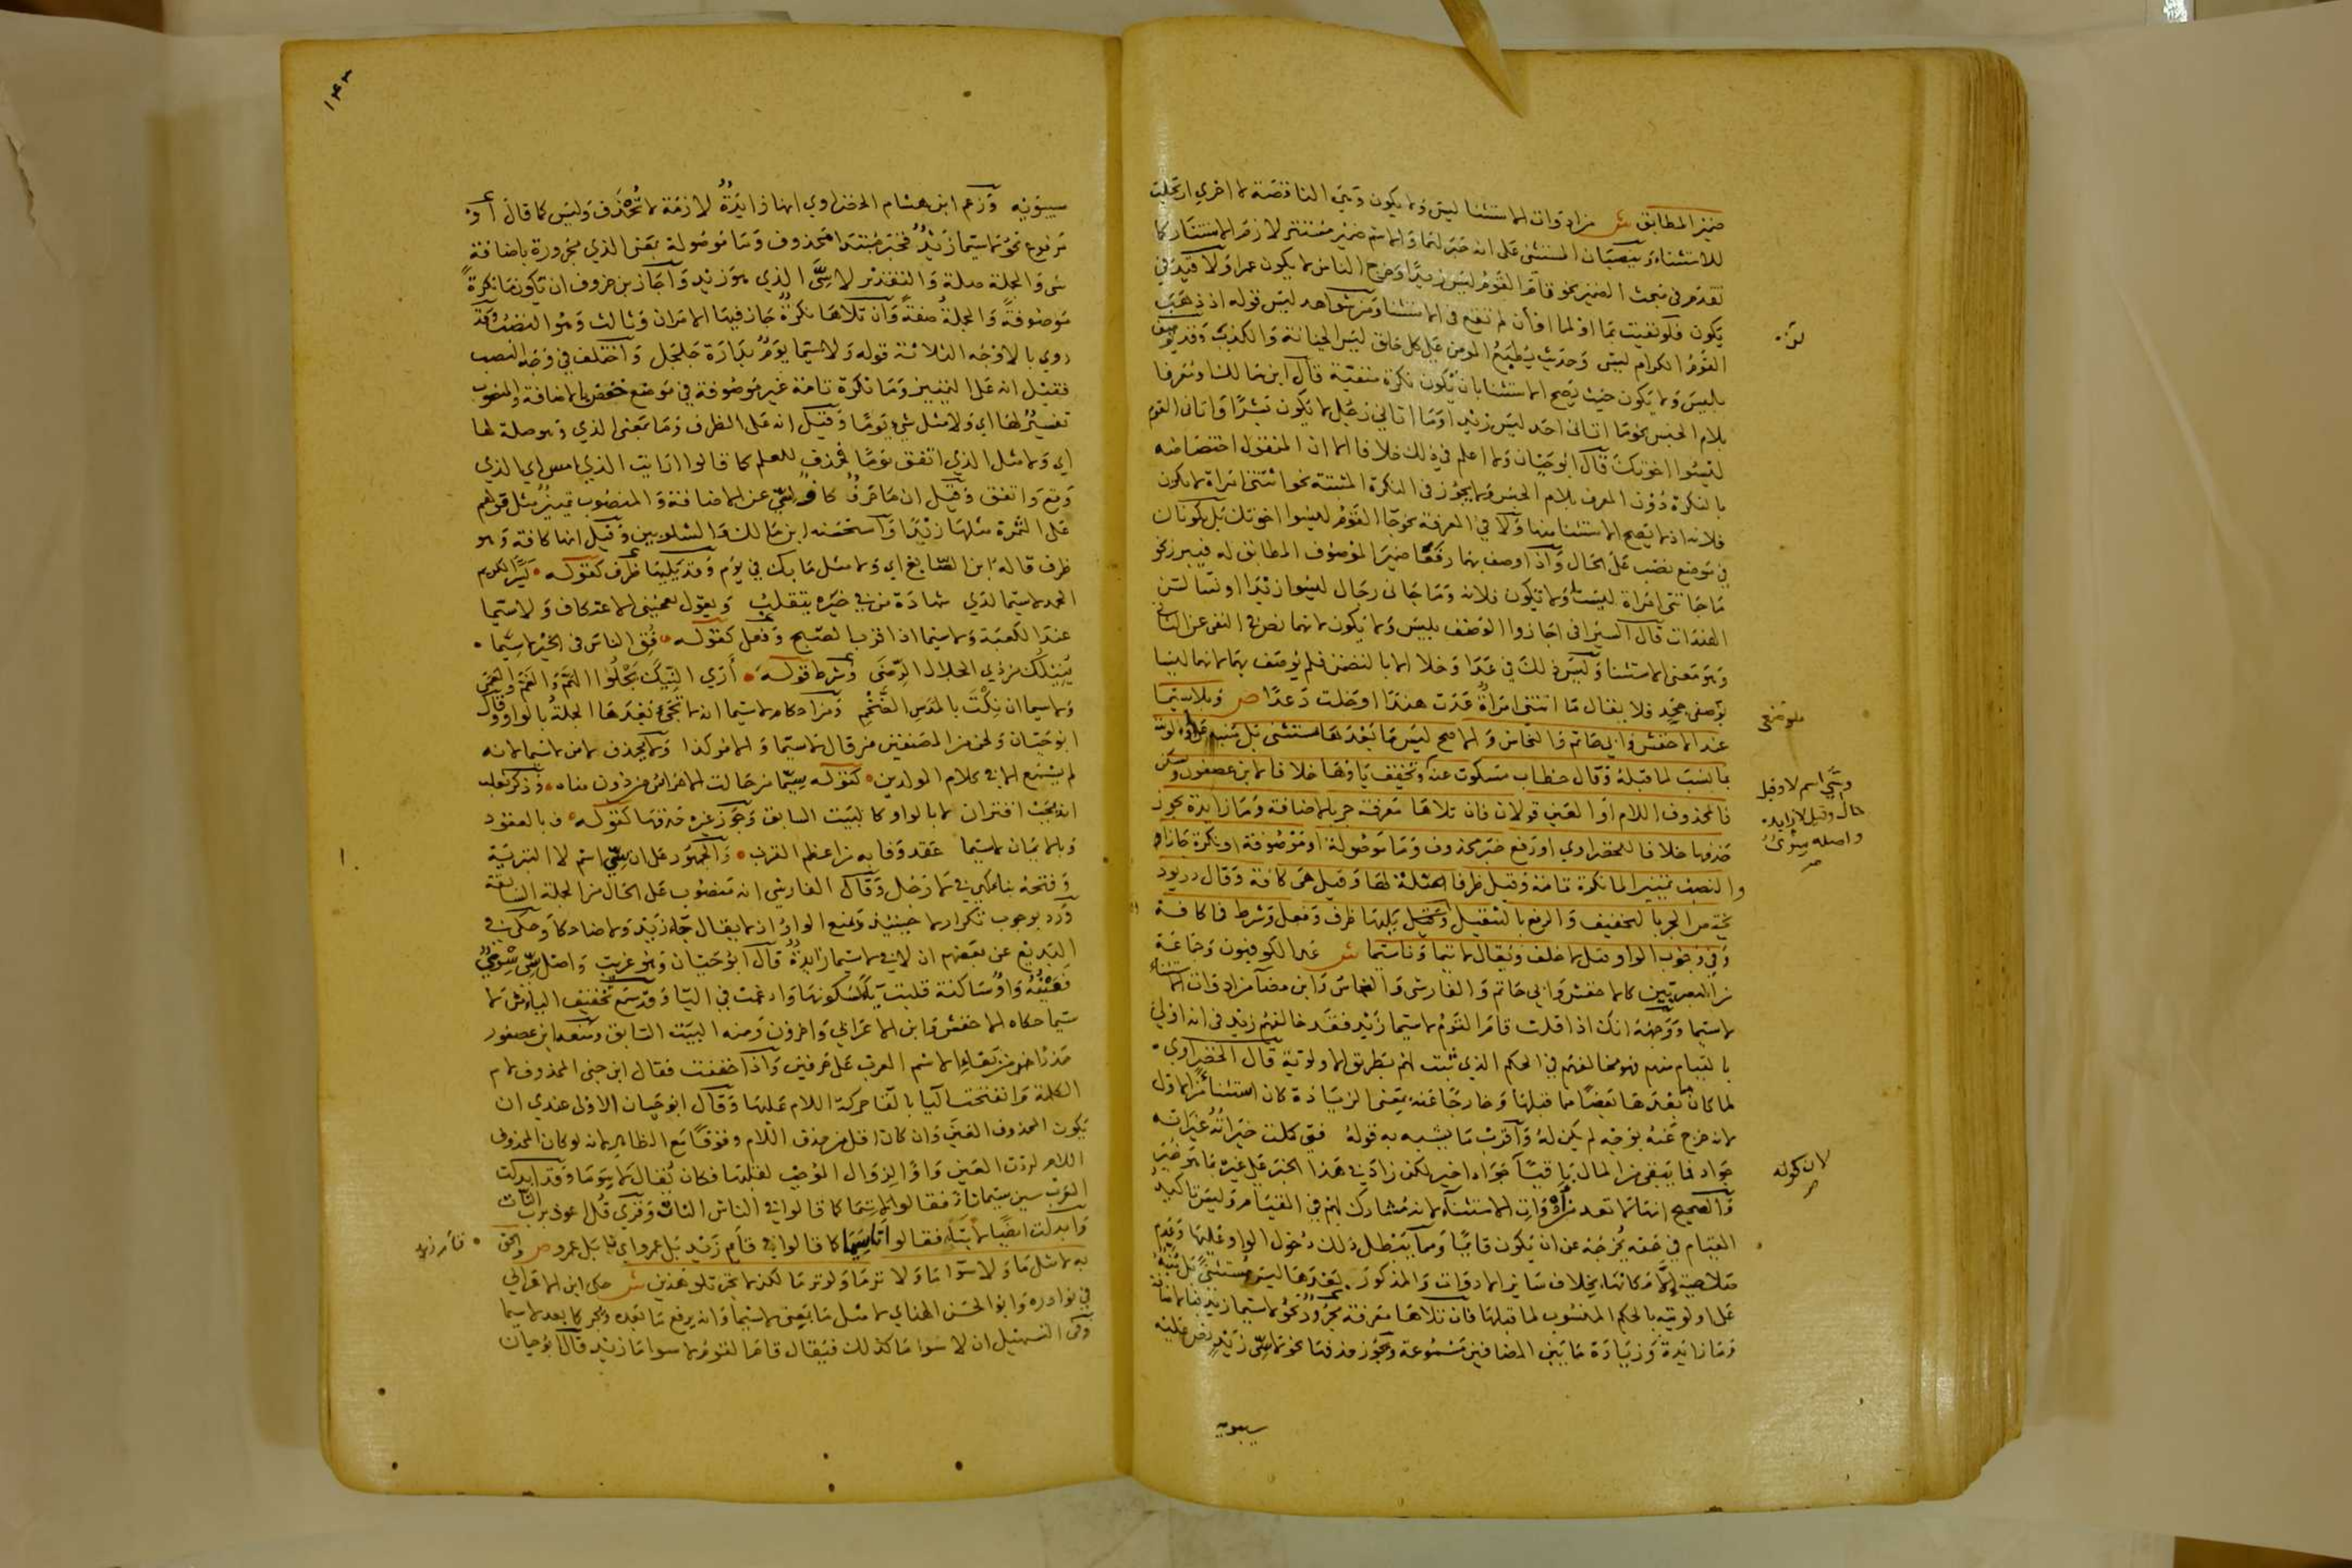 ضمير المطابق ش من ادوات الاستثنا ليس ولا يكون وهي الناقصة لا اخري ارتجلت
للاستثناء وينصبان المستثنى على انه خبر لهما والاسم ضمير مستتر لازم الاستتار كما
تقدم في مبحث الضمير نحو قام القوم ليس زيدا وخرج الناس لا يكون عمرا ولا قيد في
يكون فلو نفيت بما او لما او ان لم تقع في الاستثنا ومن شواهد ليس قوله اذ ذهب
القوم الكرام ليس وحديث يطبع المومن على كل خلق ليس الخيانة والكذب وقد يوصف
بليس ولا يكون حيث يصح الاستثنا بان يكون نكرة منفية قال ابن مالك او معرفا
بلام الجنس نحو ما اتانى احد ليس زيدا وما اتاني رجل لا يكون بشرا واتانى القوم
ليسوا اخوتك قال ابو حيان ولا اعلم في ذلك خلافا الا ان المنقول اختصاصه
بالنكرة دون المعرف بلام الجنس ولا يجوز في النكرة المثبتة نحو اتتني امراة لا تكون
فلانه اذ لا يصح الاستثنا منها ولا في المعرفة نحو جا القوم ليسوا اخوتك بل يكونان
في موضع نصب على الحال واذا وصف بهما رفعا ضمير الموصوف المطابق له فيبرز نحو
ما جاتنى امراة ليست ولا تكون فلانه وما جانى رجال ليسوا زيدا او نسا لسن
الهندات قال السيرافى اجازوا الوصف بليس ولا يكون لانهما نص في النفى عن الثانى
وهو معنى الاستثنا وليس ذلك في عدا وخلا الا بالتضمن فلم يوصف بهما لانهما ليسا
بوصفي جحد فلا يقال ما اتتنى امراة عدت هندا او خلت دعدا ص وبلا سيما
عند الاخفش وابى حاتم والنحاس والاصح ليس ما بعدها مستثنى بل منبه على اولويته
بما نسب لما قبله وقال خطاب مسكوت عنه وتخفف ياوها خلافا لابن عصفور
فالمحذوف اللام او العين قولان فان تلاها معرفة جر بالاضافة وما زايدة يجوز
حذفها خلافا للخضراوي او رفع خبر محذوف وما موصولة او موصوفة او نكرة جازا و
والنصب تمييزا لما نكرة تامة وقيل ظرفا صلة لها وقيل هى كافة وقال دريود
يختص الجر بالتخفيف والرفع بالتثقيل وقيل يليها ظرف وفعل وشرط فما كافة
وفي وجوب الواو قبل لا خلف ويقال لا تيما ونا سيما ش عد الكوفيون وجماعة
من البصريين كالاخفش وابى حاتم والفارسى والنحاس وابن مضا من ادوات الاستثناء
لا سيما ووجهه انك اذا قلت قام القوم لا سيما زيد فقد خالفهم زيد في انه اولى
بالقيام منهم فهو مخالفهم في الحكم الذي ثبت لهم بطريق الاولوية قال الخضراوي
لما كان ما بعدها بعضا مما قبلها وخارجا عنه بمعنى الزيادة كان استثناء من الاول
لانه خرج عنه بوجه لم يكن له واقرب ما يشبه به قوله فتى كملت خيراته غير انه
جواد فما يبقى من المال باقيا جواد اخير لكن زاد في هذا الخبر على غيره بما هو خير
والصحيح انها لا تعد من ادوات الاستثناء لانه مشارك لهم في القيام وليس تاكيد
القيام في حقه يخرجه عن ان يكون قائما ومما يبطل ذلك دخول الواو عليها وعدم
صلاحية الا مكانها بخلاف سائر الادوات والمذكور بعدها ليس مستثنى بل منبه
على اولويته بالحكم المنسوب لما قبلها فان تلاها معرفة مجرور نحو لا سيما زيد فبالاضافة
وما زايدة وزيادة ما بين المضافين مسموعة ويجوز حذفها نحو لا سي زيد نص عليه
سيبويه
وسي اسم لا وقيل
حال وقيل لا زايد.
واصله سوى
لان كوله
سيبويه وزعم ابن هشام الخضراوي انها زايدة لازمة لا تحذف وليس كما قال او
مرفوع نحو لا سيما زيد فخبر مبتدا محذوف وما موصولة بمعنى الذي مجرورة باضافة
سي والجملة صلة والتقدير لا سي الذي هو زيد واجاز بن خروف ان تكون ما نكرة
موصوفة والجملة صفة وان تلاها نكرة جاز فيها الامران وثالث وهو النصب وقد
روي بالاوجه الثلاثة قوله ولا سيما يوم بدارة جلجل واختلف في وجه النصب
فقيل انه على التمييز وما نكرة تامة غير موصوفة في موضع خفض بالاضافة والمنصوب
تفسير لها اي ولا مثل شيء يوما وقيل انه على الظرف وما بمعنى الذي وهو صلة لها
اي ولا مثل الذي اتفق يوما فحذف للعلم كما قالوا ارايت الذي امس اي الذي
وقع واتفق وقيل ان ما حرف كاف لسي عن الاضافة والمنصوب تمييز مثل قولهم
على الثمرة مثلها زيدا واستحسنه ابن مالك والشلوبين وقيل انها كافة وهو
ظرف قاله ابن الصايغ اي ولا مثل ما بك في يوم وقد يليها ظرف كقوله يسر الكريم
الحمد لا سيما لدي شهادة من في خيره يتقلب ويقول يعجبنى الاعتكاف ولا سيما
عند الكعبة ولا سيما اذا قرب الصبح وفعل كقوله فق الناس في الخير لا سيما
ينيلك من ذي الجلال الرضى وشرط كقوله أري النيك يجلوا الهم والغم والعمى
ولا سيما ان نكت بالمدس الضخم ومن احكام لا سيما انه لا تجى بعدها الجملة بالواو قال
ابو حيان ولحن من المصنفين من قال لا سيما والامر كذا ولا يحذف لا من لا سيما لانه
لم يسمع الا في كلام المولدين كقوله سيما من حالت الاحراس من دون مناه وذكر ثعلب
انه يجب اقتران لا بالواو كالبيت السابق وجوز غيره حذفها كقوله ف بالعقود
وبالايمان لا سيما عقد وفا به من اعظم القرب والجمهور على ان سي اسم لا التبرية
وفتحه بنا كهي في لا رجل وقال الفارسى انه منصوب على الحال من الجملة السابقة
ورد بوجوب تكرار لا حينئذ وبمنع الواو اذ لا يقال جاء زيد ولا ضاحكا وحكى في
البديع عن بعضهم ان لا في لا سيما زايدة قال ابو حيان وهو غريب واصل سي سوي
فعينه واو ساكنة قلبت ياء لسكونها وادغمت في اليا وقد سمع تخفيف الياء من لا
سيما حكاه الاخفش وابن الاعرابي واخرون ومنه البيت السابق ومنعه ابن عصفور
حذرا من بقاء الاسم المعرب على حرفين واذا خففت فقال ابن جنى المحذوف لام
الكلمة وانفتحت اليا بالقا حركة اللام عليها وقال ابو حيان الاولى عندي ان
يكون المحذوف العين وان كان اقل من حذف اللام وقوفا مع الظاهر لانه لو كان المحذوف
اللام لردت العين واوا لزوال الموجب لقلبها فكان يقال لا سوما وقد ابدلت
العرب سين سيما تا فقالوا لا تيما كما قالوا في الناس النات وقري قل اعوذ برب النات
وابدلت ايضا لا نا فقالوا نا سيما كما قالوا في قام زيد بل عمرو اي نا بل عمرو ص والحق
به لا مثل ما ولا سوا ما ولا ترما ولو ترما لكن لا يجر تلو هذين ش حكى ابن الاعرابي
في نوادره وابو الحسن الهناي لا مثل ما بمعنى لا سيما وانه يرفع ما بعده ويجر كما بعد لا سيما
وفى التسهيل ان لا سوا ما كذلك فيقال قام القوم لا سوا ما زيد قال ابو حيان
قام زيد
١٤٣